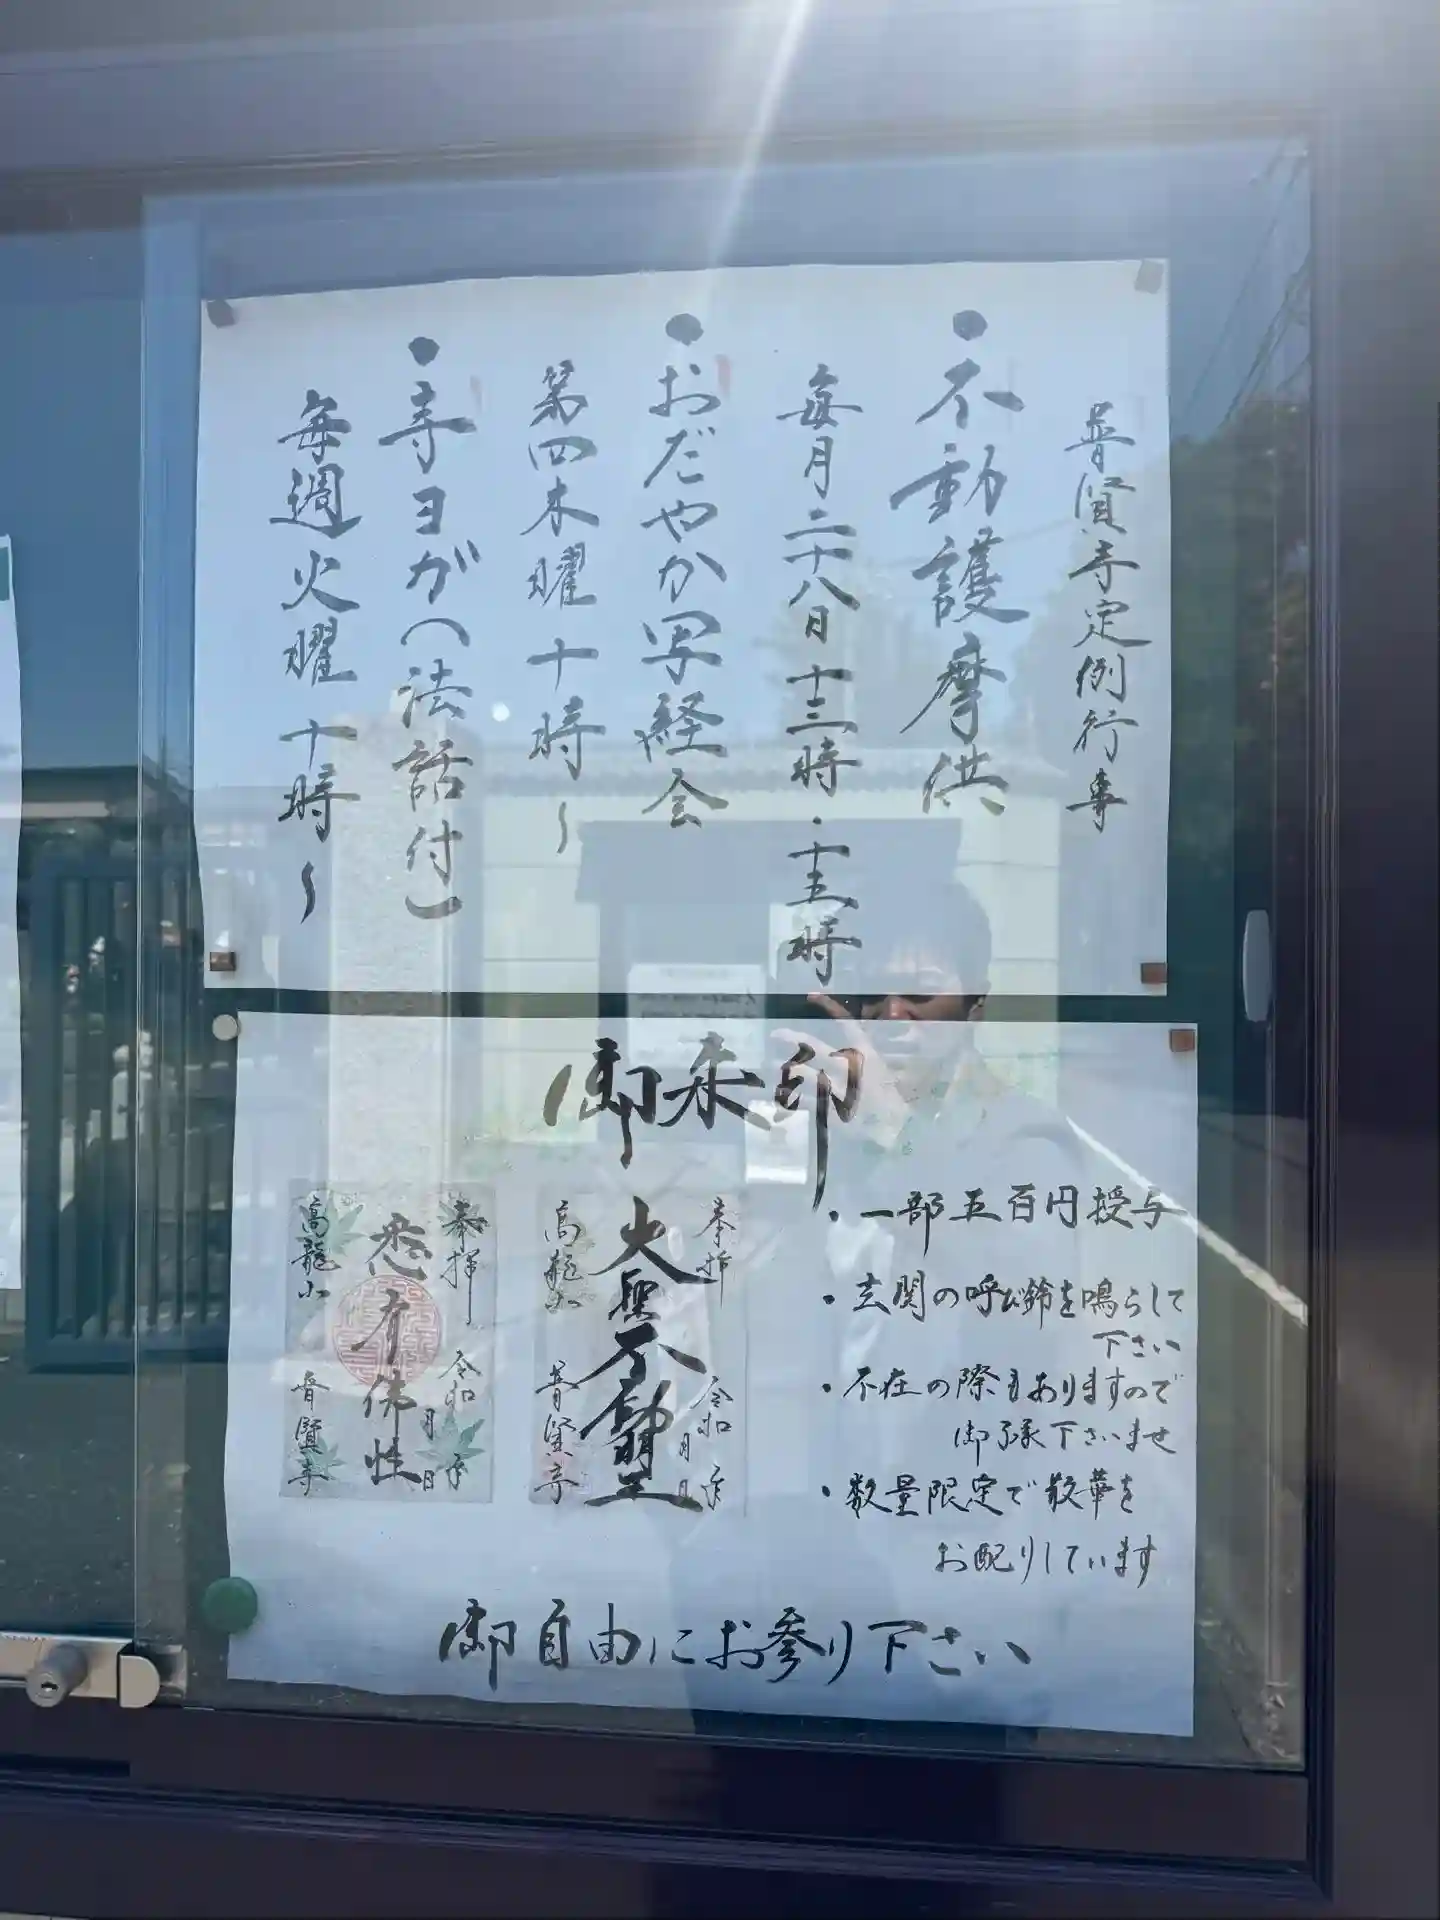 普賢寺定例行事
・不動護摩供
毎月二十八日十三時・十五時
・おだやか写経会
第四木曜十時〜
・寺ヨガ(法話付)
毎週火曜十時〜
御朱印
・一部五百円授与
・玄関の呼び鈴を鳴らして
下さい
・不在の際もありますので
御了承下さいませ
・数量限定で散華を
お配りしています
奉拝
令和 年
月 日
大聖不動明王
高龍山
普賢寺
奉拝
令和 年
月 日
悉有佛性
高龍山
普賢寺
御自由にお参り下さい